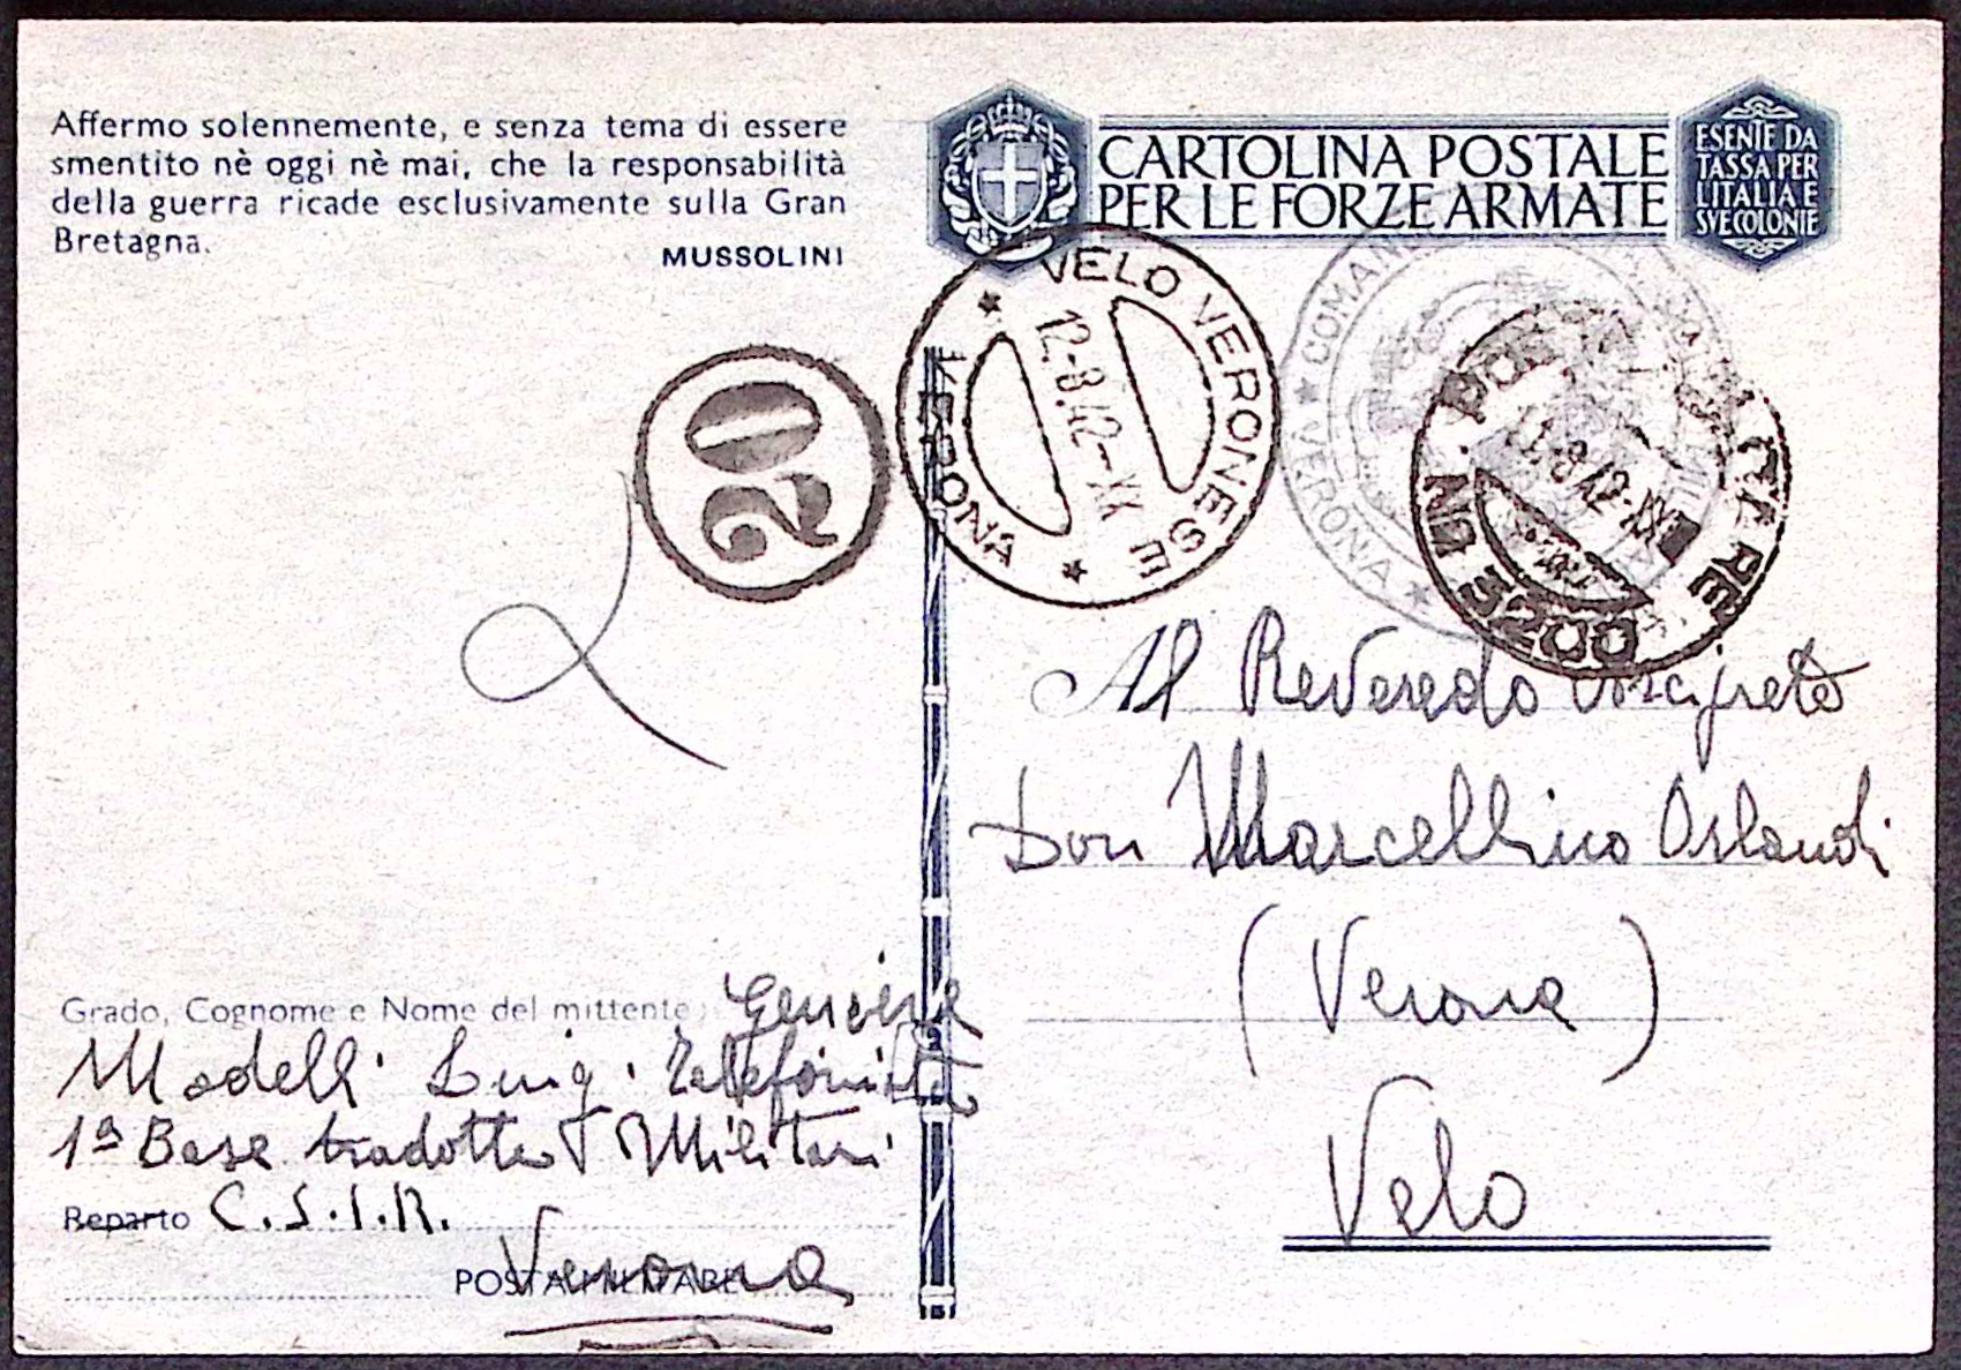 Affermo solennemente, e senza tema di essere
smentito nè oggi nè mai, che la responsabilità
della guerra ricade esclusivamente sulla Gran
Bretagna.
MUSSOLINI
CARTOLINA POSTALE
PER LE FORZE ARMATE
ESENTE DA
TASSA PER
L'ITALIA E
SVE COLONIE
VELO VERONESE
12-8.42-XX
* VERONA *
20
* COMAN
VERONA *
POSTA MILITARE
8 42-XX
No 3200
Al Reveredo Arciprete
Don Marcellino Orlandi
(Verona)
Velo
Grado, Cognome e Nome del mittente: Geniere
Modelli Luigi Telefonista
1ª Base tradotte Militari
Reparto C.S.I.R.
POSTA MILITARE
Verona